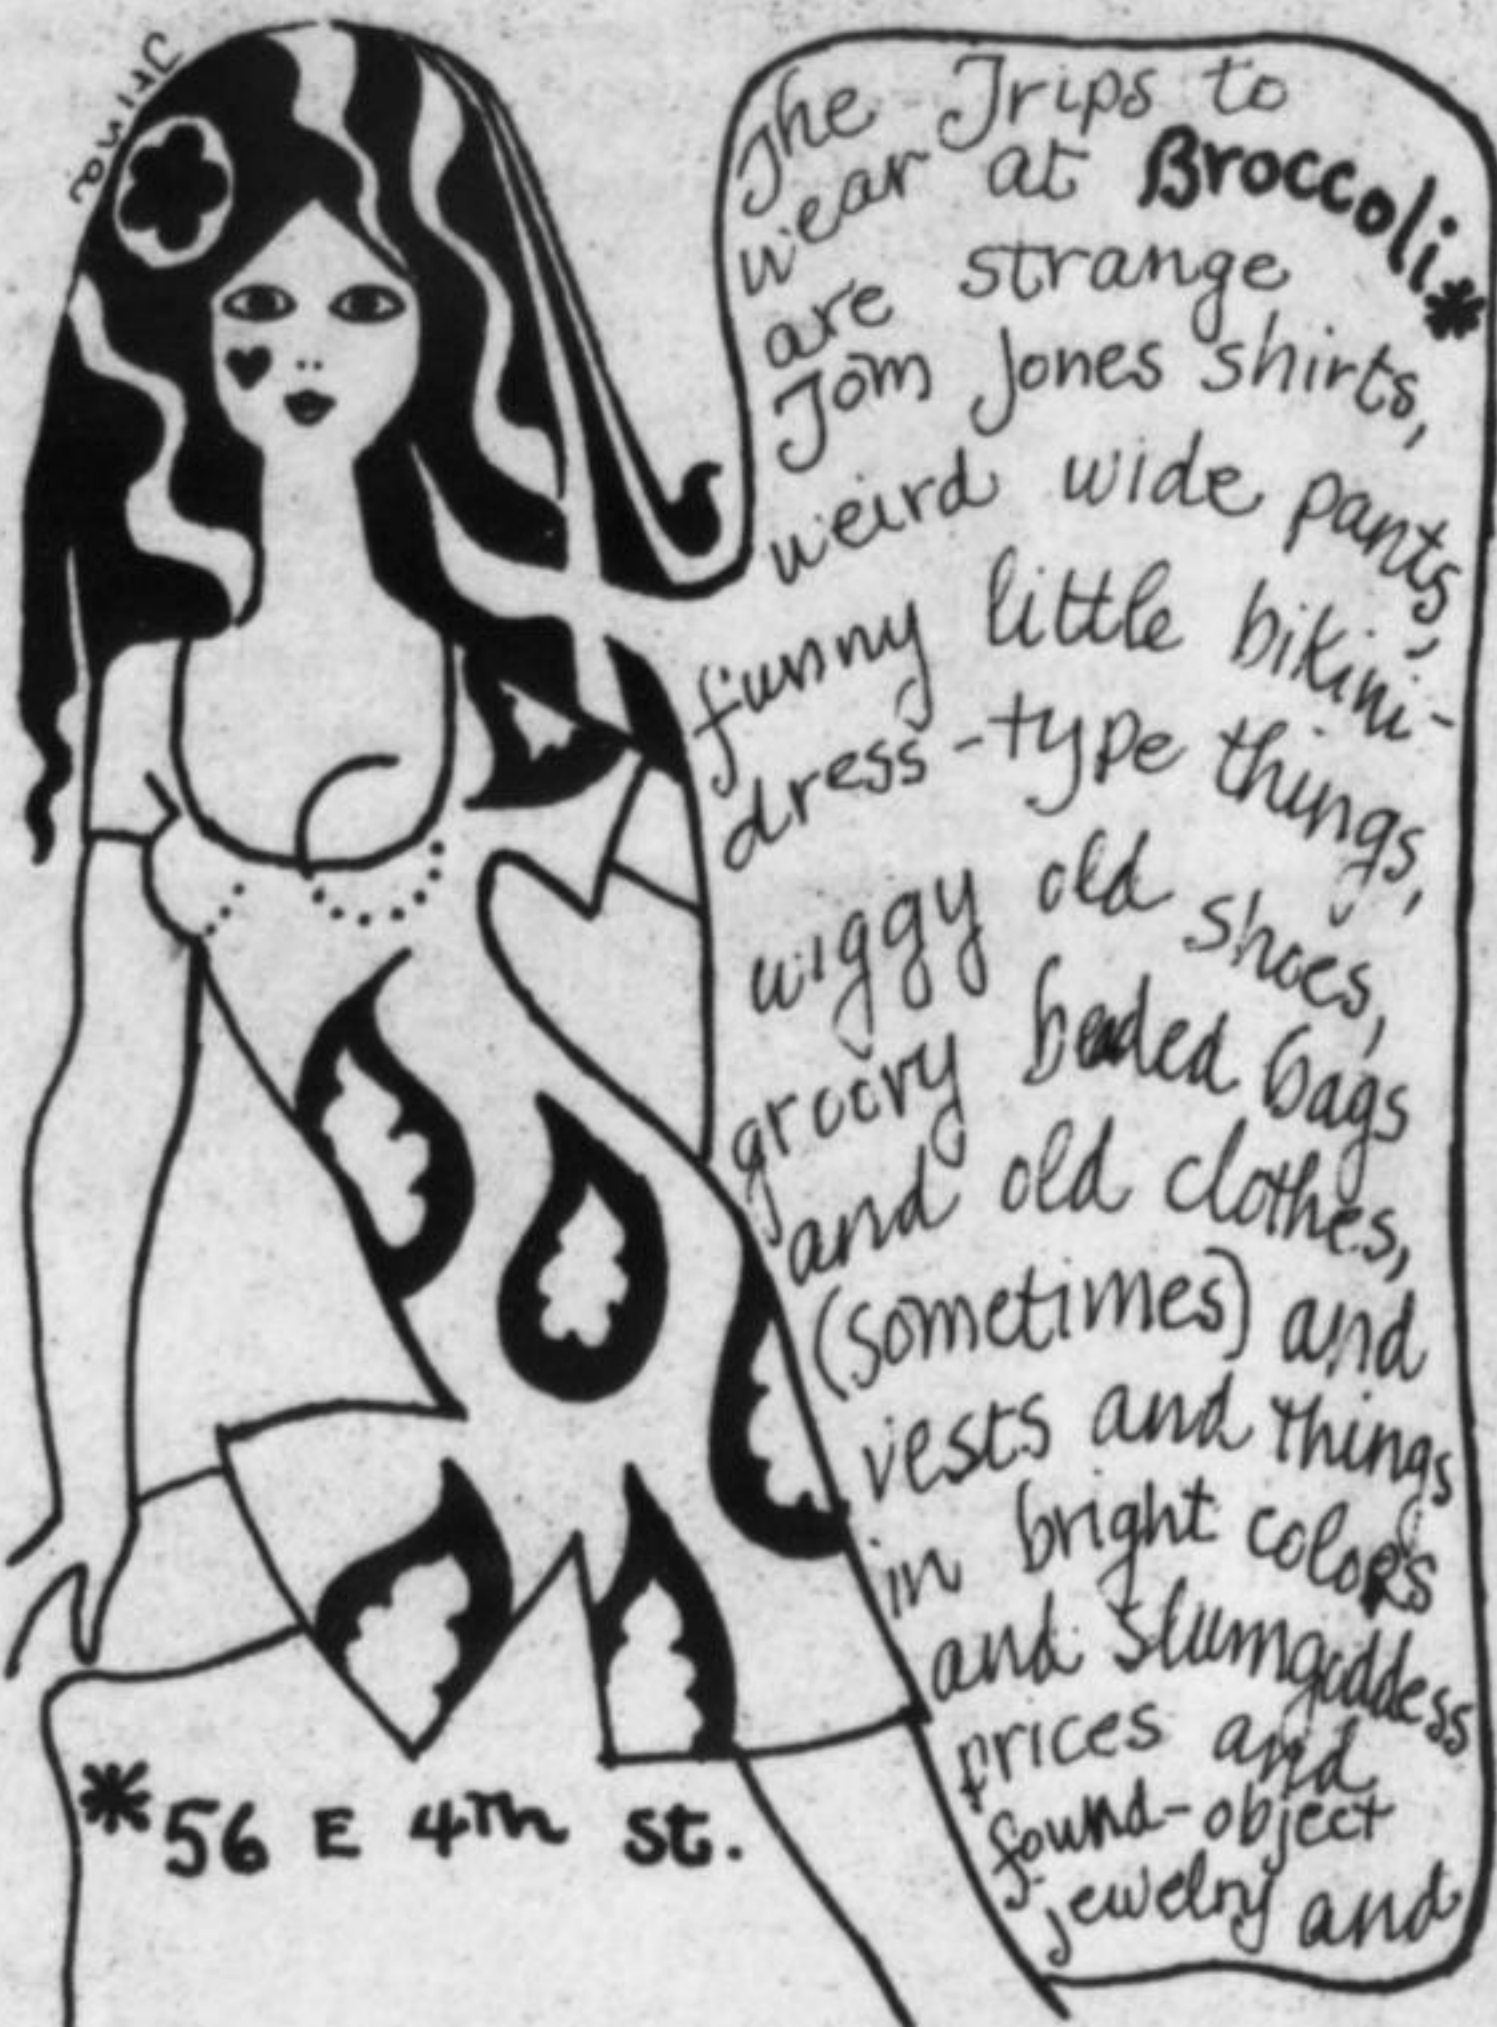 Trina
The Trips to
wear at Broccoli*
are strange
Tom Jones shirts,
weird wide pants,
funny little bikini-
dress-type things,
wiggy old shoes,
groovy beaded bags
and old clothes,
(sometimes) and
vests and things
in bright colors
and slumgoddess
prices and
found-object
jewelry and
*56 E 4Th St.